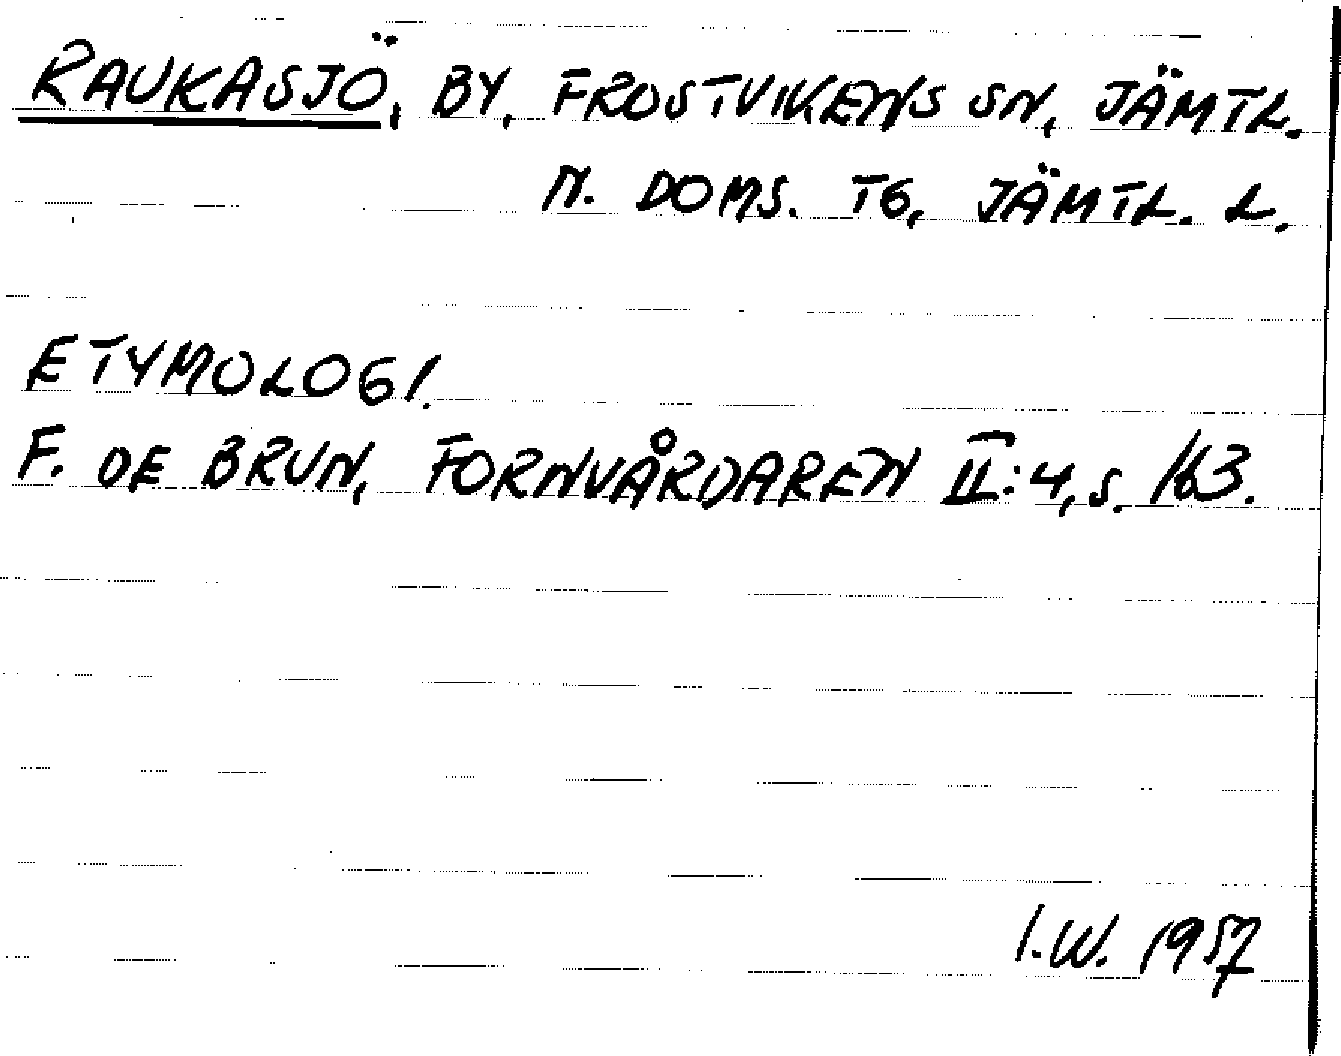 RAUKASJÖ, BY, FROSTVIKENS SN, JÄMTL.
N. DOMS. TG, JÄMTL. L.
ETYMOLOGI.
F. DE BRUN, FORNVÅRDAREN II:4, S. 163.
I.W. 1957